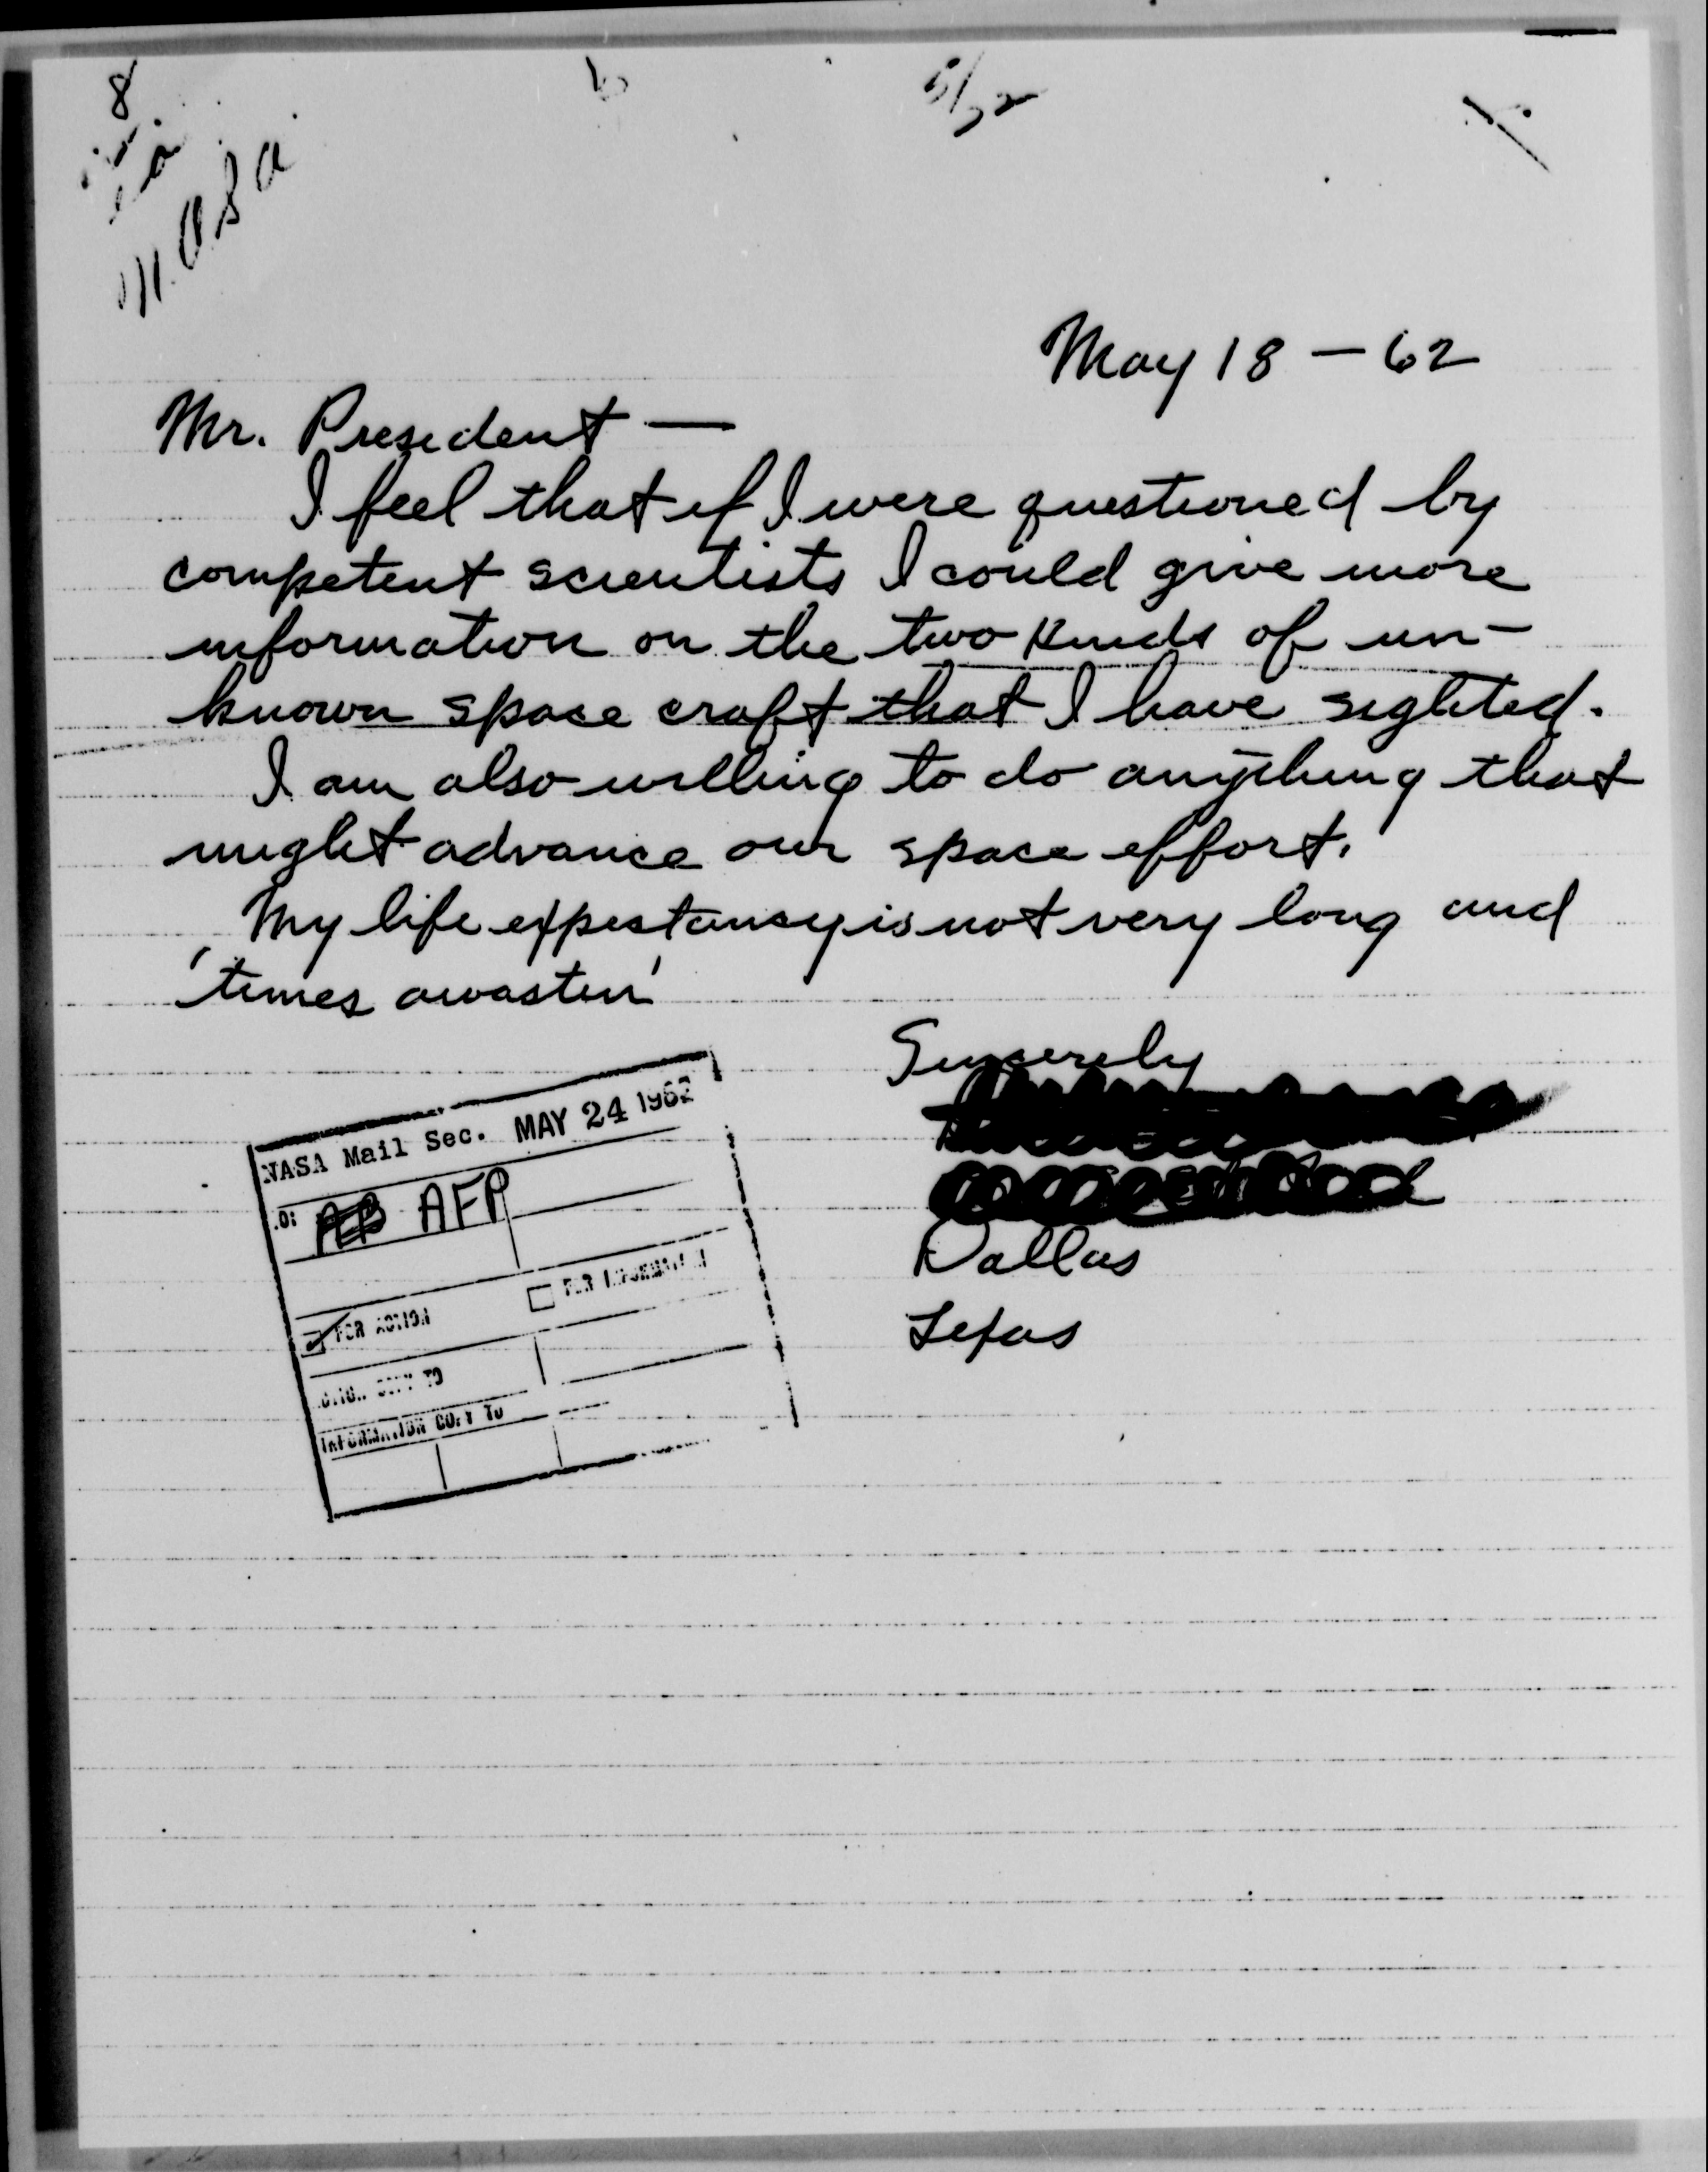 5/22
N.A.S.A.
May 18 – 62
Mr. President —
I feel that if I were questioned by
competent scientists I could give more
information on the two kinds of un-
known space craft that I have sighted.
I am also willing to do anything that
might advance our space effort.
My life expectancy is not very long and
'times awastin'
Sincerely
Dallas
Texas
NASA Mail Sec. MAY 24 1962
AFP
FOR ACTION
FOR INFORMATION
COPY TO
INFORMATION COPY TO